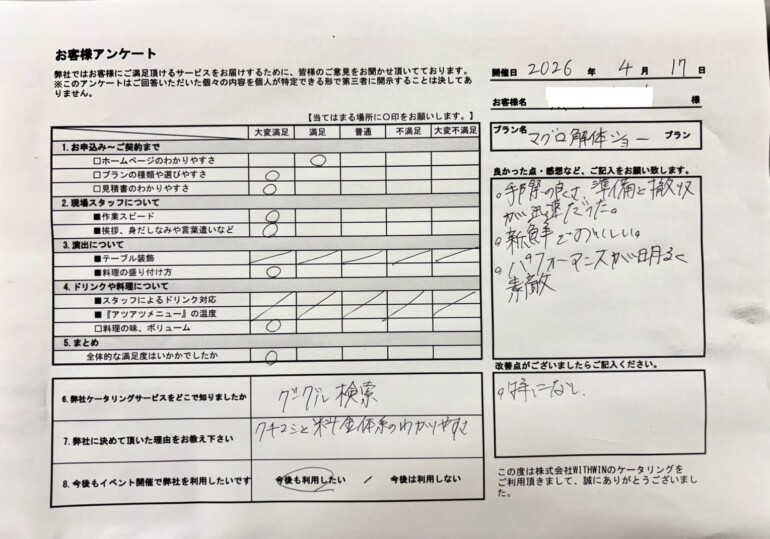 お客様アンケート
弊社ではお客様にご満足頂けるサービスをお届けするために、皆様のご意見をお聞かせ頂いております。
※このアンケートはご回答いただいた個々の内容を個人が特定できる形で第三者に開示することは決してありません。
開催日 2026 年 4 月 17 日
お客様名 様
【当てはまる場所に〇印をお願いします。】
プラン名 マグロ解体ショー プラン
大変満足 満足 普通 不満足 大変不満足
1.お申込み～ご契約まで
□ホームページのわかりやすさ ○
□プランの種類や選びやすさ ○
□見積書のわかりやすさ ○
2.現場スタッフについて
■作業スピード ○
■挨拶、身だしなみや言葉遣いなど ○
3.演出について
■テーブル装飾
■料理の盛り付け方 ○
4.ドリンクや料理について
■スタッフによるドリンク対応
■『アツアツメニュー』の温度
□料理の味、ボリューム ○
5.まとめ
全体的な満足度はいかがでしたか ○
良かった点・感想など、ご記入をお願い致します。
。手際の良さ、準備と撤収
が迅速だった。
。新鮮でおいしい。
。パフォーマンスが明るく
素敵
改善点がございましたらご記入ください。
。特になし.
6.弊社ケータリングサービスをどこで知りましたか グーグル検索
7.弊社に決めて頂いた理由をお教え下さい クチコミと料金体系のわかりやすさ
8.今後もイベント開催で弊社を利用したいです 今後も利用したい / 今後は利用しない
この度は株式会社WITHWINのケータリングを
ご利用頂きまして、誠にありがとうございまし
た。